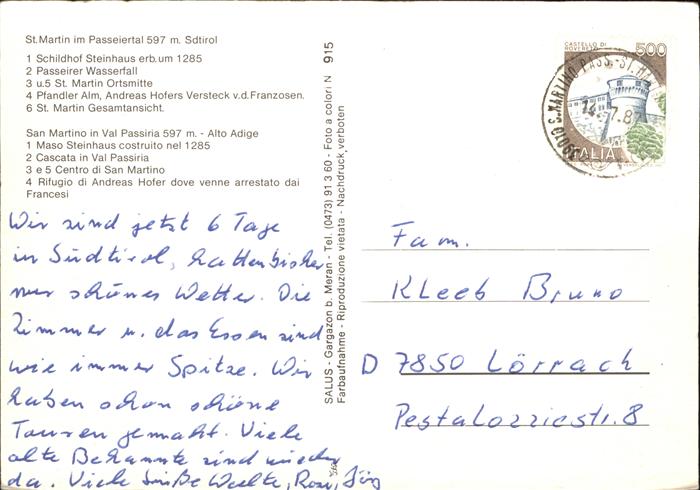 St. Martin im Passeiertal 597 m. Sdtirol
1 Schildhof Steinhaus erb. um 1285
2 Passeirer Wasserfall
3 u.5 St. Martin Ortsmitte
4 Pfandler Alm, Andreas Hofers Versteck v.d. Franzosen.
6 St. Martin Gesamtansicht.
San Martino in Val Passiria 597 m. - Alto Adige
1 Maso Steinhaus costruito nel 1285
2 Cascata in Val Passiria
3 e 5 Centro di San Martino
4 Rifugio di Andreas Hofer dove venne arrestato dai
Francesi
Wir sind jetzt 6 Tage
in Südtirol, hatten bisher
nur schönes Wetter. Die
Zimmer u. das Essen sind
wie immer Spitze. Wir
haben schon schöne
Touren gemacht. Viele
alte Bekannte sind wieder
da. Viele Grüße Rosi, Jörg
SALUS - Gargazon b. Meran - Tel. (0473) 91 3 60 - Foto a colori N 915
Farbaufnahme - Riproduzione vietata - Nachdruck verboten
CASTELLO DI
ROVERETO
500
ITALIA
39010 S. MARTINO PASS.-ST.
7.8
Fam.
Kleeb Bruno
D 7850 Lörrach
Pestalozziestr. 8